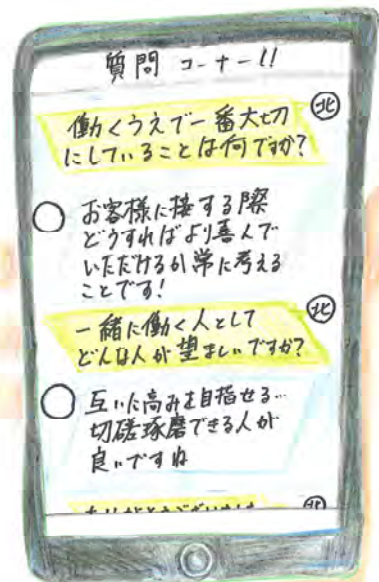 質問コーナー!!
北
働くうえで一番大切
にしていることは何ですか?
お客様に接する際
どうすればより喜んで
いただけるか常に考える
ことです!
北
一緒に働く人として
どんな人が望ましいですか?
互いに高みを目指せる…
切磋琢磨できる人が
良いですね
北